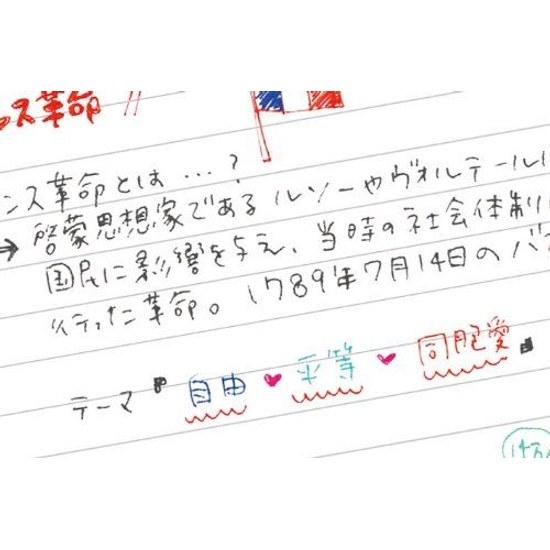 ス革命 //
ンス革命とは…?
→ 啓蒙思想家であるルソーやヴォルテール
国民に影響を与え、当時の社会体制
行った革命。1789年7月14日のバ
テーマ〝自由♥平等♥同胞愛〟
14万